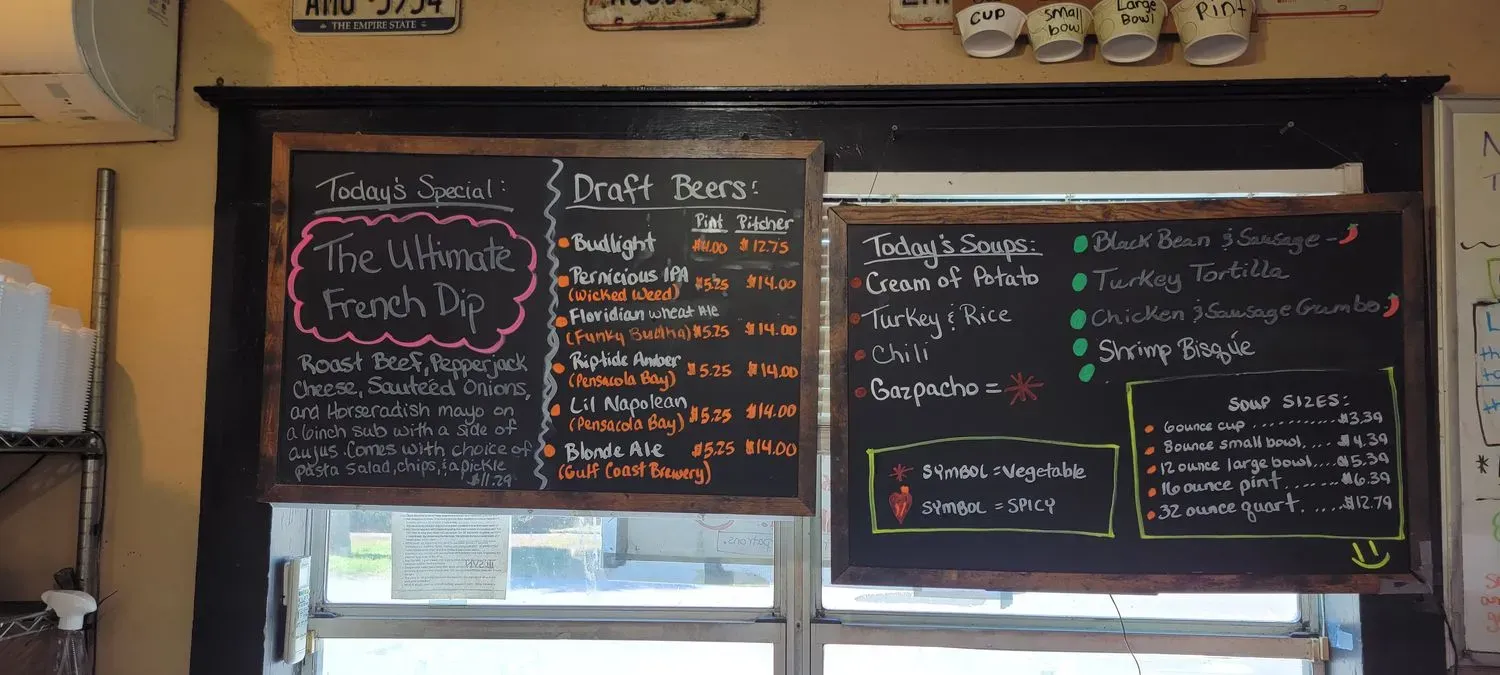 THE EMPIRE STATE
CUP
Small bowl
Large Bowl
Pint
Today's Special:
The Ultimate
French Dip
Roast Beef, Pepperjack
Cheese, Sauteed Onions,
and Horseradish mayo on
a 6inch sub with a side of
aujus. Comes with choice of
pasta salad, chips, & a pickle
$11.29
Draft Beers:
Pint Pitcher
Budlight $4.00 $12.75
Pernicious IPA $5.25 $14.00
(Wicked Weed)
Floridian Wheat Ale
(Funky Buddha) $5.25 $14.00
Riptide Amber $5.25 $14.00
(Pensacola Bay)
Lil Napolean $5.25 $14.00
(Pensacola Bay)
Blonde Ale $5.25 $14.00
(Gulf Coast Brewery)
Today's Soups:
Cream of Potato
Turkey & Rice
Chili
Gazpacho = *
Black Bean & Sausage -
Turkey Tortilla
Chicken & Sausage Gumbo
Shrimp Bisque
* SYMBOL = Vegetable
SYMBOL = SPICY
SOUP SIZES:
6 ounce cup .......... $3.39
8 ounce small bowl.... $4.39
12 ounce large bowl.... $5.39
16 ounce pint........ $6.39
32 ounce quart. ..... $12.79